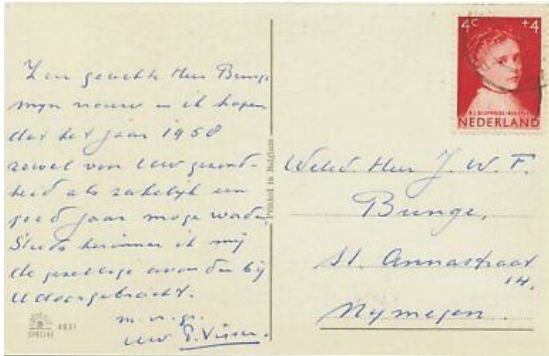 Zeer geachte Heer Bunge
mijn vrouw en ik hopen
dat het jaar 1958
zowel voor Uw gezond-
heid als zakelijk een
goed jaar moge worden.
Steeds herinner ik mij
de gezellige avonden bij
U doorgebracht.
m.v.gr.
uw P. Visser.
SPECIAL 4831
Printed in Belgium
4c +4
NEDERLAND
Weled. Heer J. W. F.
Bunge,
St. Annastraat
14.
Nijmegen.